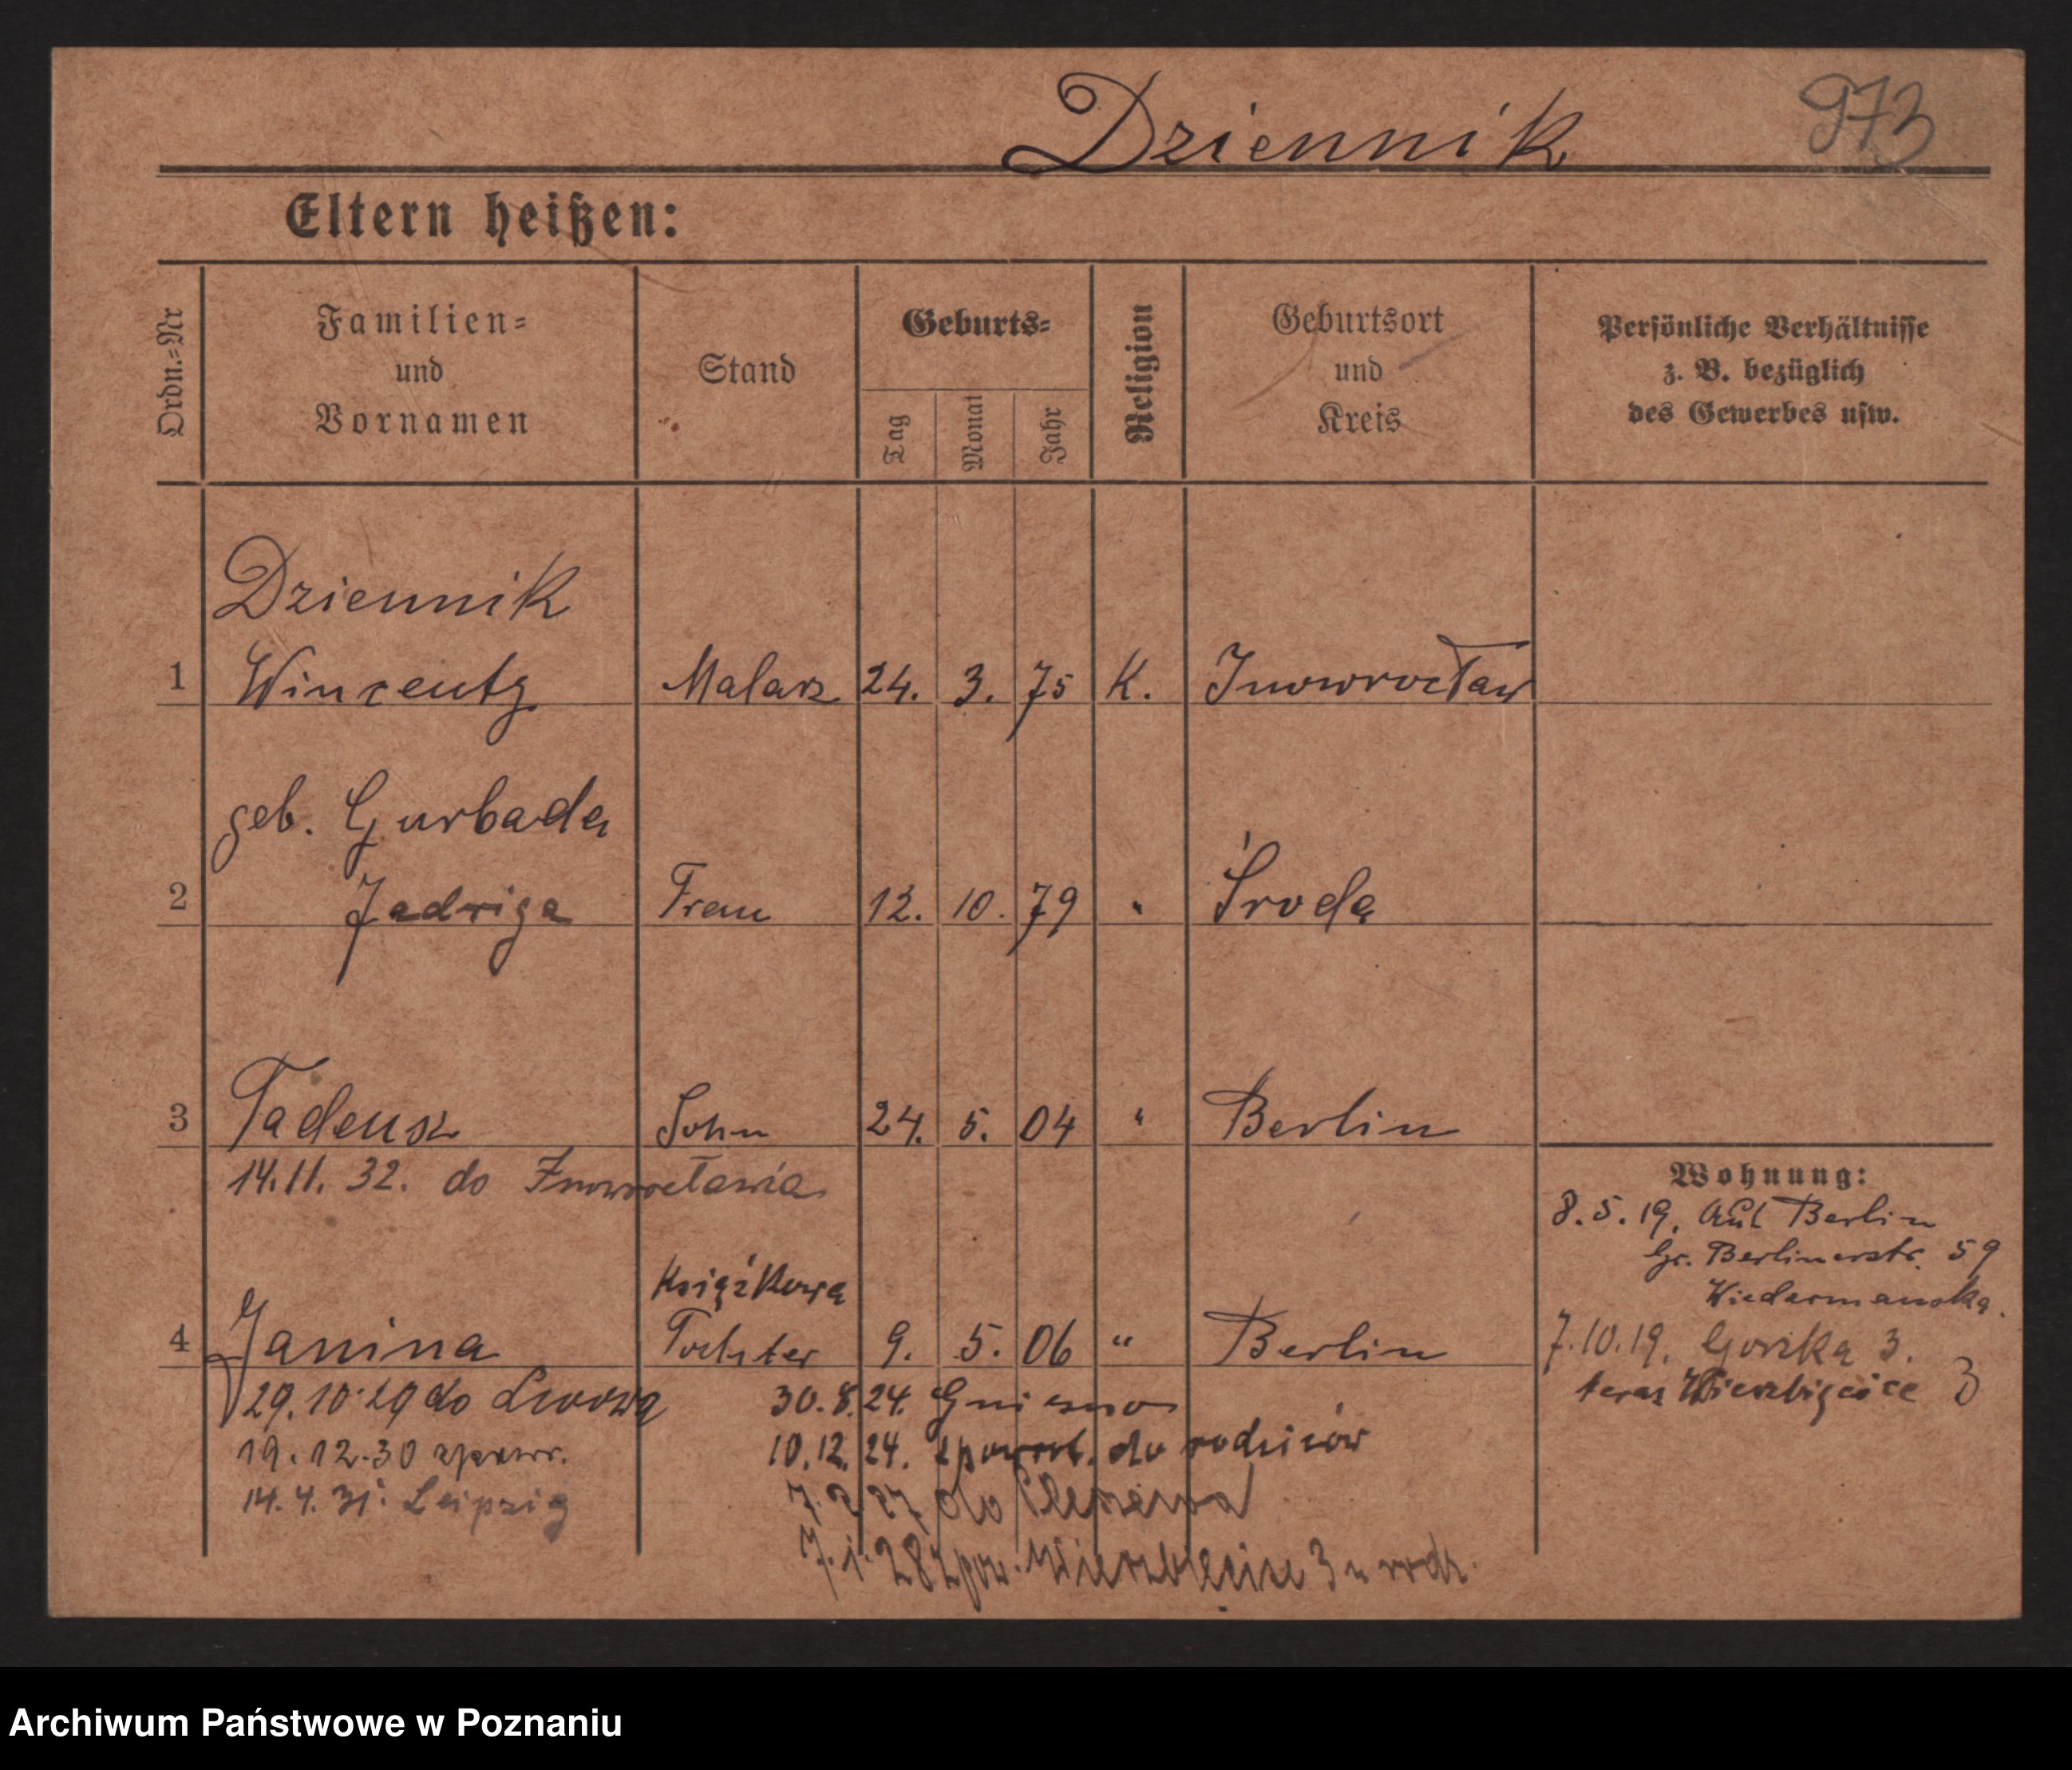 Dziennik
973
Eltern heißen:
Ordn.=Nr
Familien=
und
Vornamen
Stand
Geburts=
Tag
Monat
Jahr
Religion
Geburtsort
und
Kreis
Persönliche Verhältnisse
z. B. bezüglich
des Gewerbes usw.
Dziennik
1 Wincenty Malarz 24. 3. 75 K. Inowrocław
geb. Gurbada
2 Jadwiga Frau 12. 10. 79 " Środa
3 Tadeusz Sohn 24. 5. 04 " Berlin
14.11. 32. do Inowrocławia
Książkowa
4 Janina Tochter 9. 5. 06 " Berlin
29.10.29 do Lwowa
19.12.30 zpowr.
14.4.31. Leipzig
30.8.24. Gniezno
10.12.24. zpowrot. do rodziców
7.2 27 do Pleszewa
7.1.28 zpow. Wierzbięcice 3 u rodz.
Wohnung:
8.5.19. aus Berlin
Gr. Berlinerstr. 59
7.10.19. Gorzka 3.
teraz Wierzbięcice 3
Archiwum Państwowe w Poznaniu